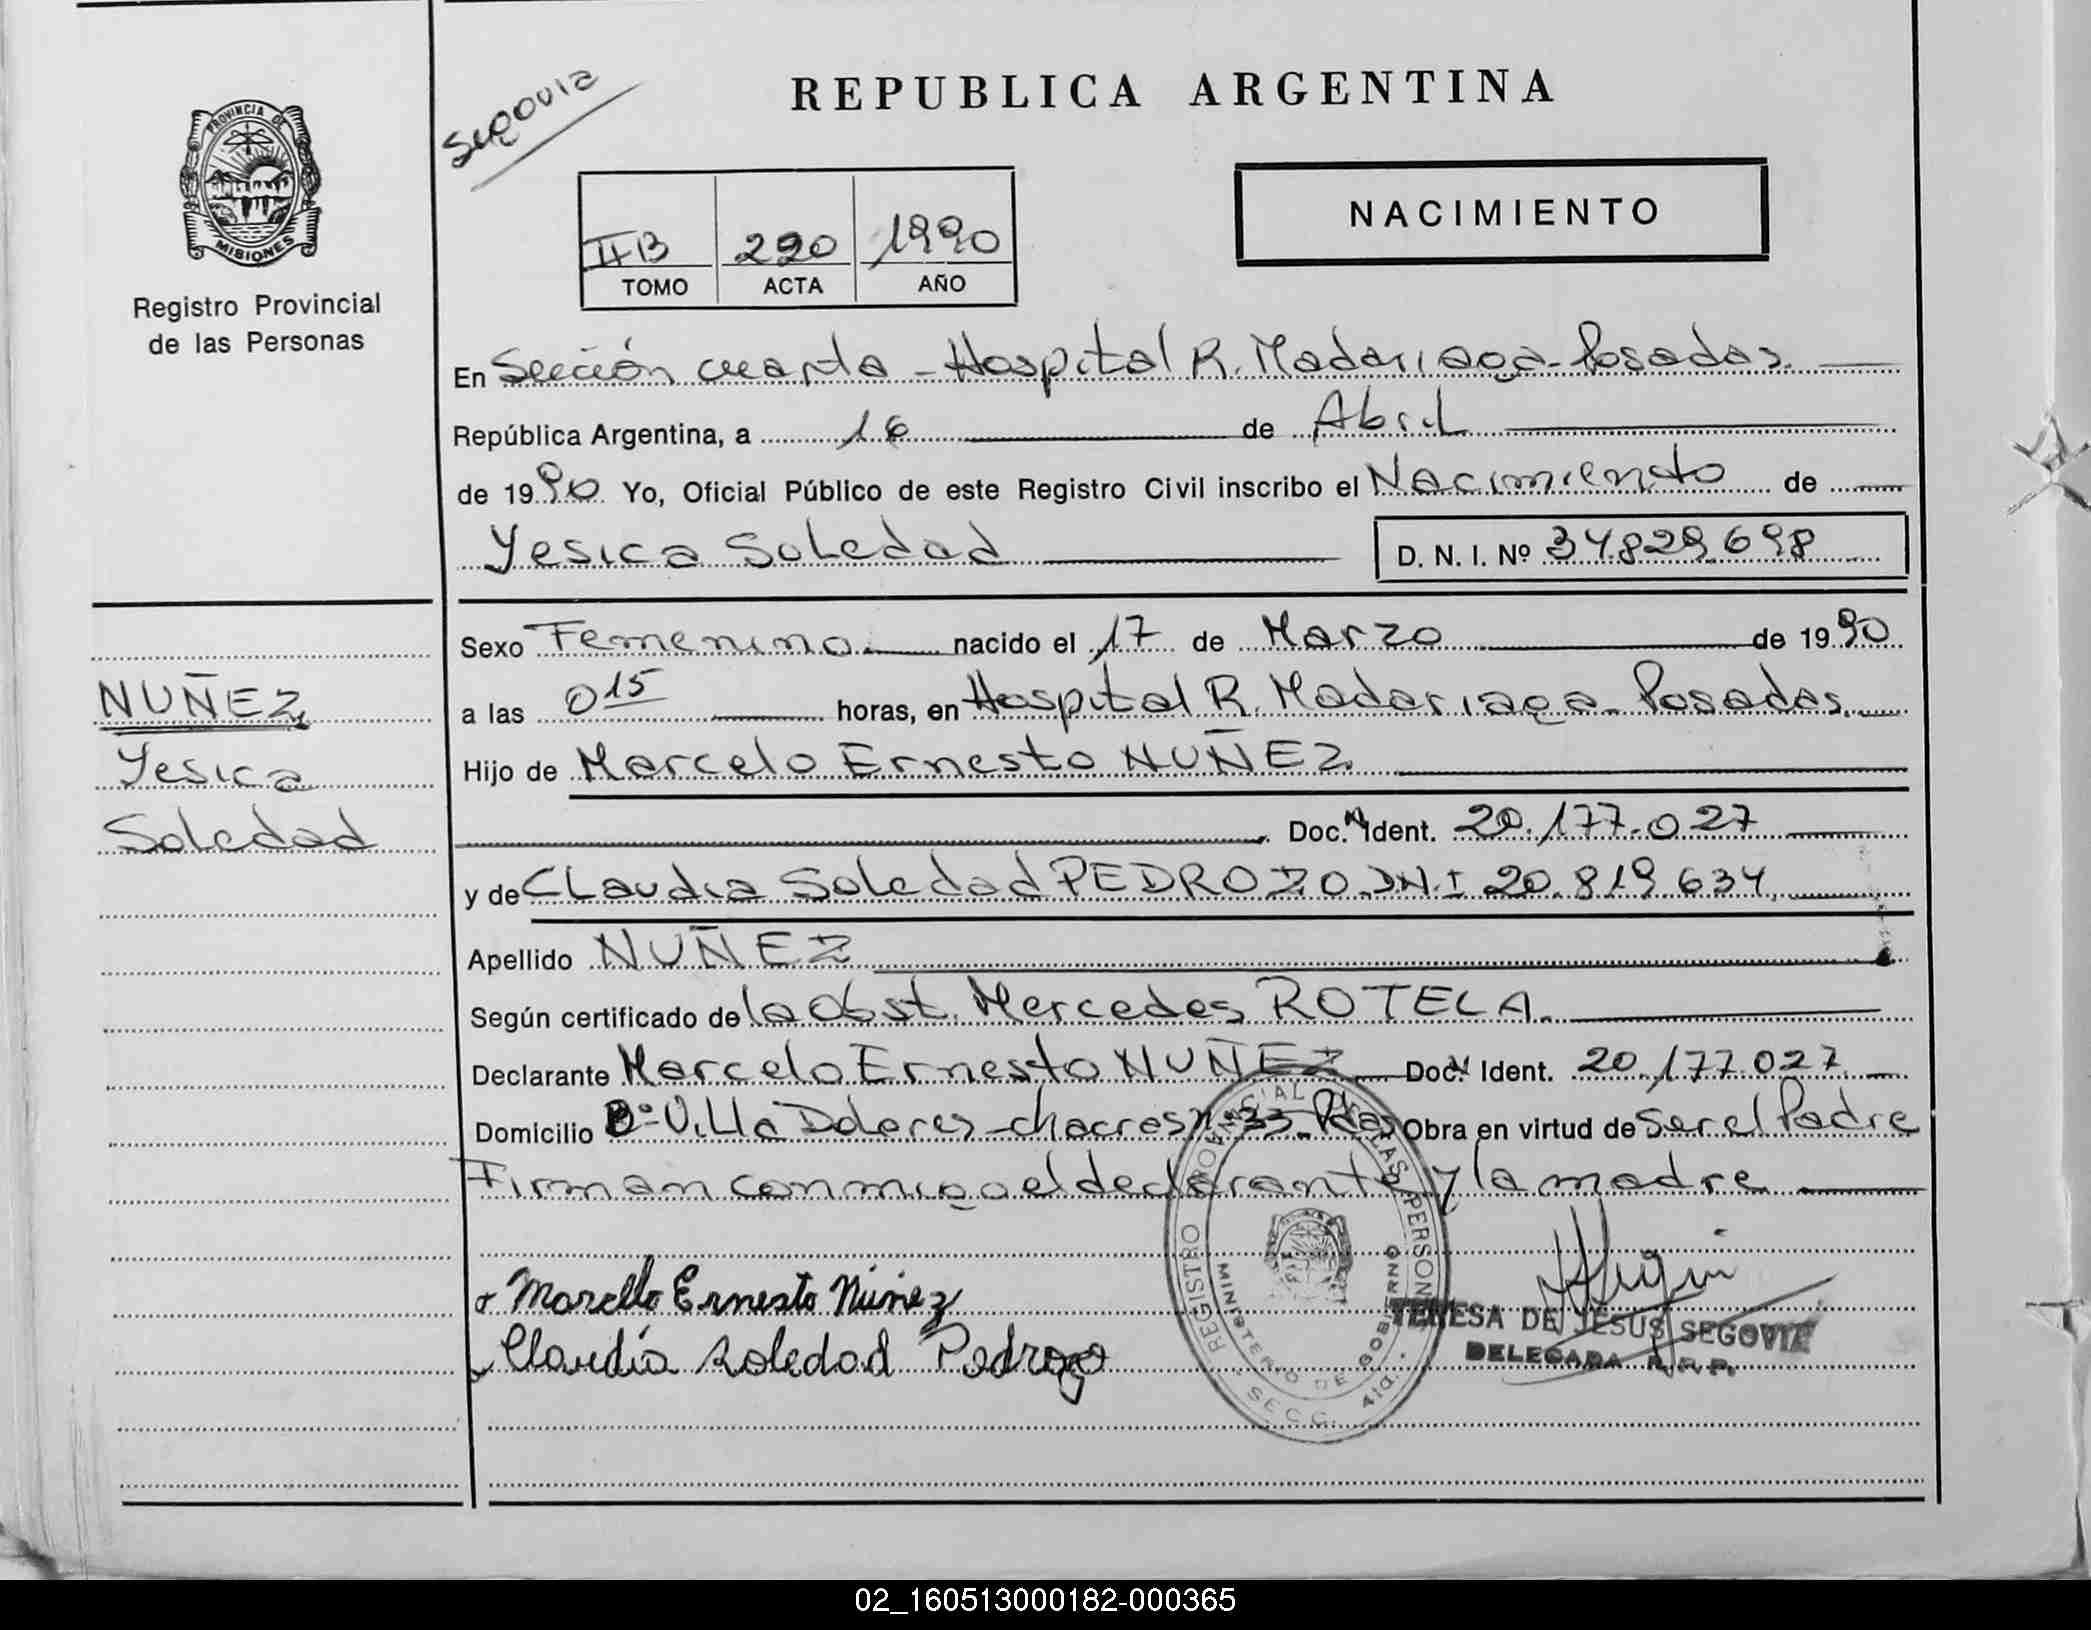 REPUBLICA ARGENTINA
Segovia
PROVINCIA DE
MISIONES
Registro Provincial
de las Personas
NACIMIENTO
IIB 290 1990
TOMO ACTA AÑO
En Sección cuarta - Hospital R. Madariaga - Posadas.
República Argentina, a 16 de Abril
de 1990 Yo, Oficial Público de este Registro Civil inscribo el Nacimiento de
Yesica Soledad D. N. I. Nº 34.829.698
Sexo Femenino nacido el 17 de Marzo de 1990
NUÑEZ
Yesica
Soledad
a las 0 15 horas, en Hospital R. Madariaga - Posadas.
Hijo de Marcelo Ernesto NUÑEZ
Doc. N Ident. 20.177.027
y de Claudia Soledad PEDROZO. D.N.I 20.819.634
Apellido NUÑEZ
Según certificado de la Obst. Mercedes ROTELA
Declarante Marcelo Ernesto NUÑEZ Doc. N Ident. 20.177.027
Domicilio Bº Villa Dolores - chacras Nº 33 - Pdas Obra en virtud de ser el Padre
Firman conmigo el declarante y la madre
Marcelo Ernesto Núñez
Claudia Soledad Pedrozo
REGISTRO PROVINCIAL DE LAS PERSONAS
MINISTERIO DE GOBIERNO
SECC. 4ta.
TERESA DE JESUS SEGOVIA
DELEGADA R. R. P.
02_160513000182-000365